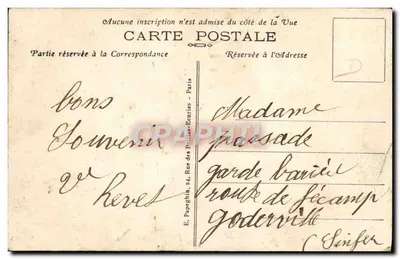 Aucune inscription n'est admise du côté de la Vue
CARTE POSTALE
Partie réservée à la Correspondance
Réservée à l'Adresse
D
bons
Souvenir
Vve hevet
E. Papeghin, 24, Rue des Petites-Ecuries - Paris
CPARAMA
Madame
passade
garde bariée
route de fécamp
goderville
(Sinfer